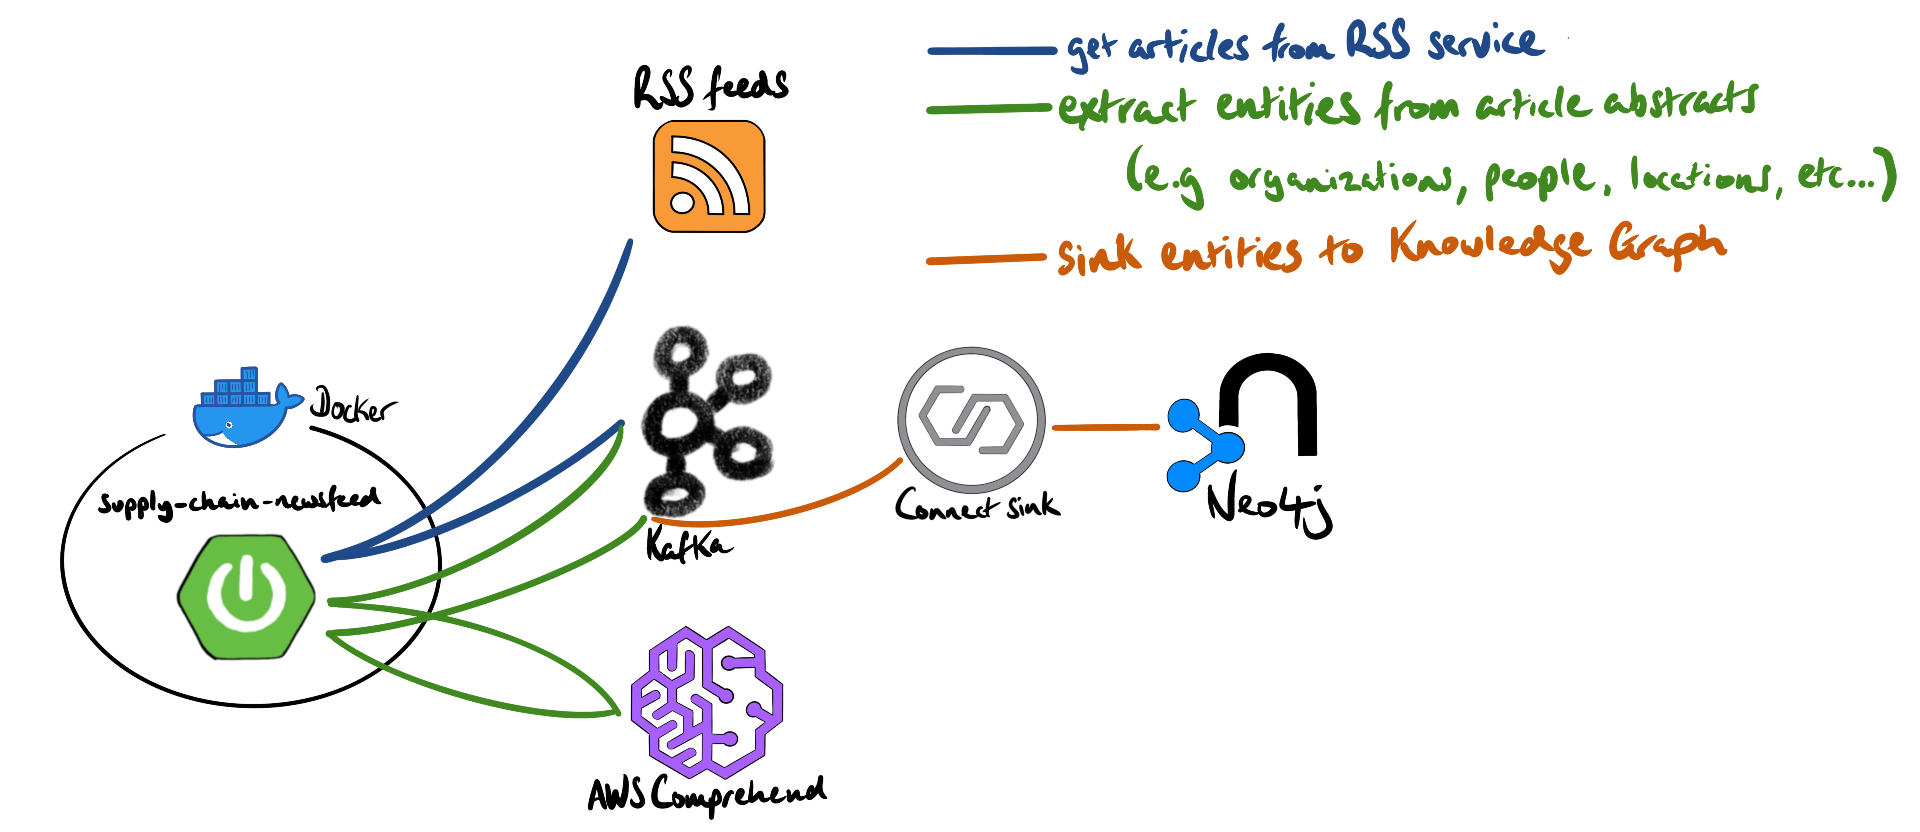 get articles from RSS service
extract entities from article abstracts
(e.g organizations, people, locations, etc...)
sink entities to Knowledge Graph
RSS feeds
Docker
supply-chain-newsfeed
Kafka
Connect Sink
Neo4j
AWS Comprehend